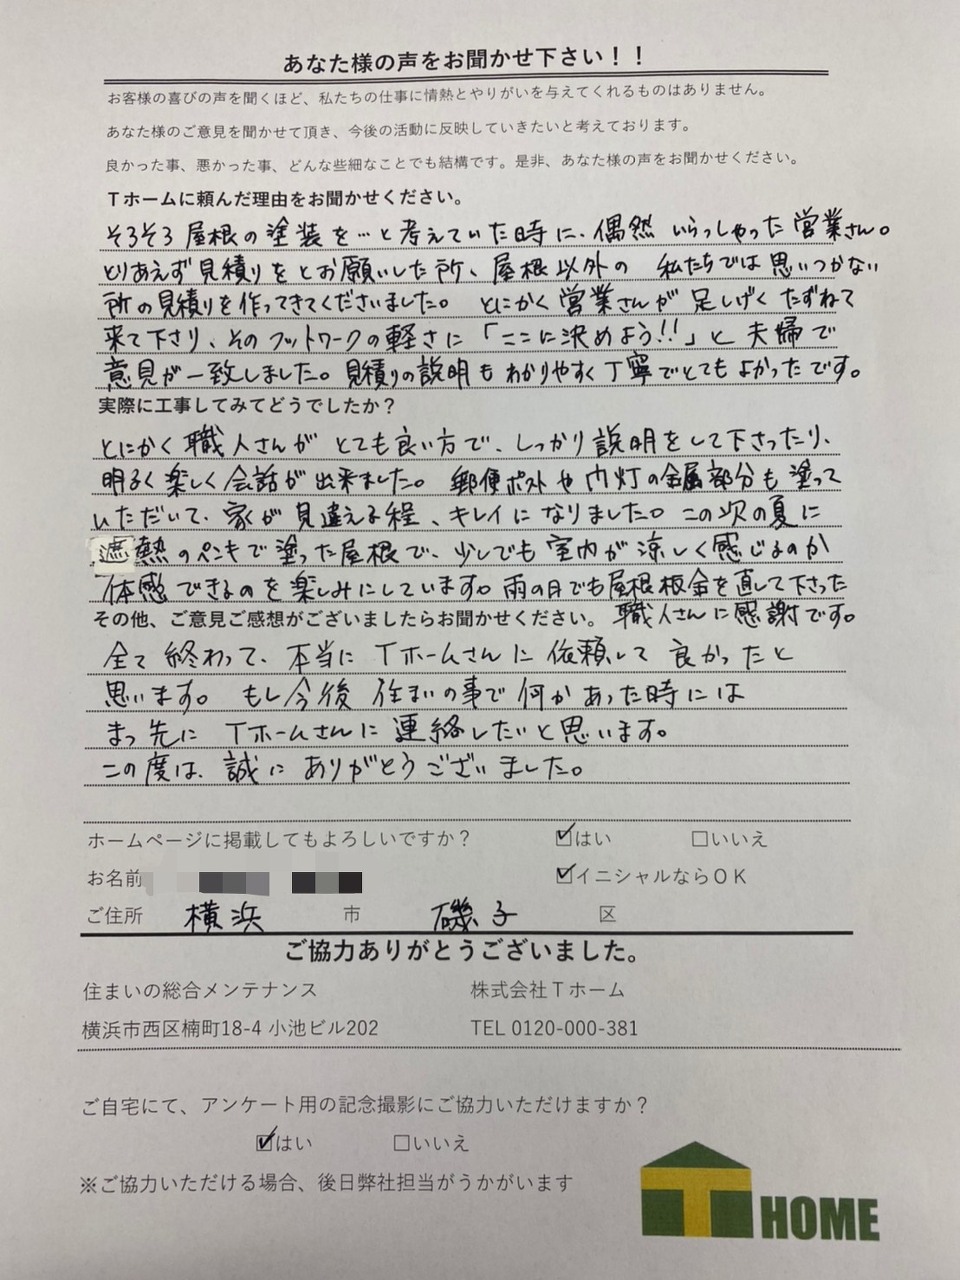 あなた様の声をお聞かせ下さい！！
お客様の喜びの声を聞くほど、私たちの仕事に情熱とやりがいを与えてくれるものはありません。
あなた様のご意見を聞かせて頂き、今後の活動に反映していきたいと考えております。
良かった事、悪かった事、どんな些細なことでも結構です。是非、あなた様の声をお聞かせください。
Ｔホームに頼んだ理由をお聞かせください。
そろそろ屋根の塗装を…と考えていた時に、偶然いらっしゃった営業さん。
とりあえず見積りをとお願いした所、屋根以外の 私たちでは思いつかない
所の見積りを作ってきてくださいました。 とにかく営業さんが足しげくたずねて
来て下さり、そのフットワークの軽さに「ここに決めよう!!」と夫婦で
意見が一致しました。見積りの説明もわかりやすく丁寧でとてもよかったです。
実際に工事してみてどうでしたか？
とにかく職人さんがとても良い方で、しっかり説明をして下さったり、
明るく楽しく会話が出来ました。郵便ポストや門灯の金属部分も塗って
いただいて、家が見違える程、キレイになりました。この次の夏に
遮熱のペンキで塗った屋根で、少しでも室内が涼しく感じるのか
体感できるのを楽しみにしています。雨の日でも屋根板金を直して下さった
その他、ご意見ご感想がございましたらお聞かせください。 職人さんに感謝です。
全て終わって、本当にＴホームさんに依頼して良かったと
思います。もし今後住まいの事で何かあった時には
まっ先にＴホームさんに連絡したいと思います。
この度は、誠にありがとうございました。
ホームページに掲載してもよろしいですか？ ☑はい □いいえ
お名前 ☑イニシャルならＯＫ
ご住所 横浜 市 磯子 区
ご協力ありがとうございました。
住まいの総合メンテナンス 株式会社Ｔホーム
横浜市西区楠町18-4 小池ビル202 TEL 0120-000-381
ご自宅にて、アンケート用の記念撮影にご協力いただけますか？
☑はい □いいえ
※ご協力いただける場合、後日弊社担当がうかがいます
T HOME